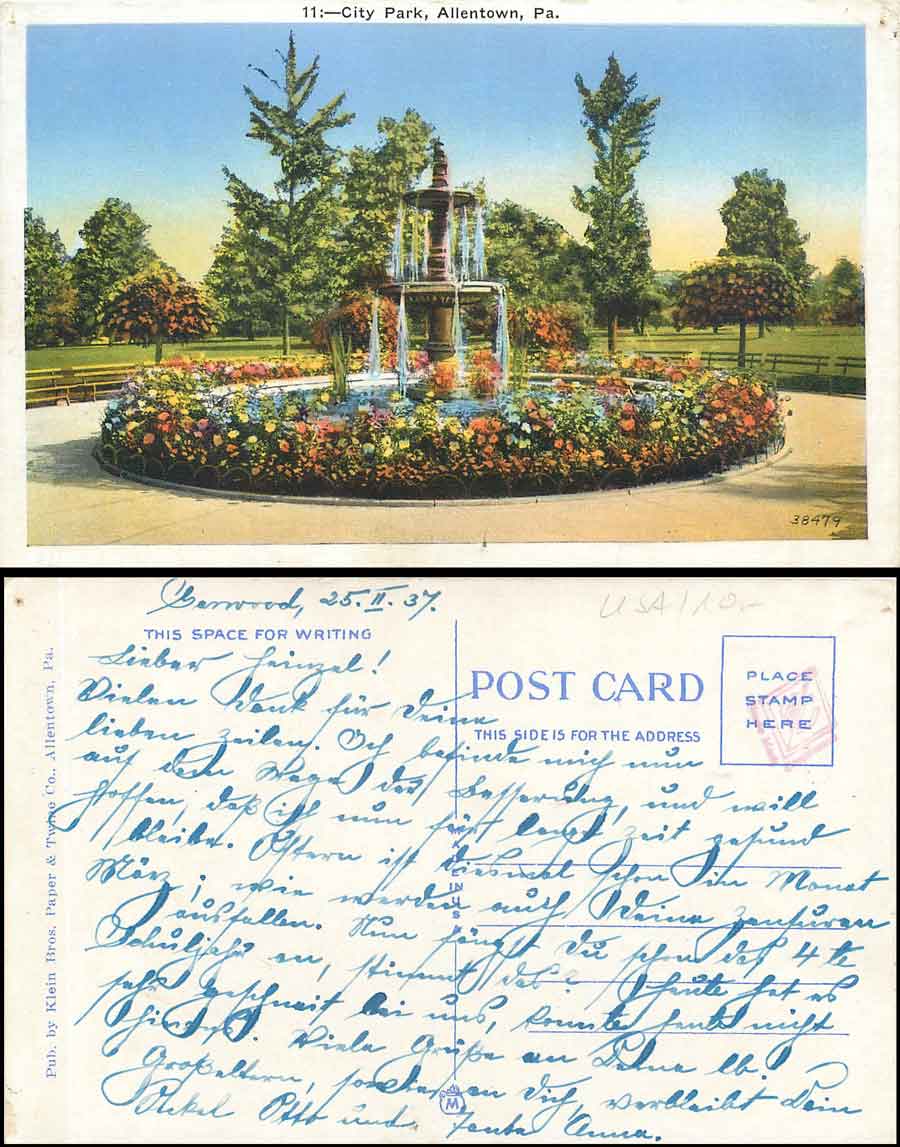 11:—City Park, Allentown, Pa.
38479
Garwood, 25.II.37.
USA/10.-
THIS SPACE FOR WRITING
POST CARD
THIS SIDE IS FOR THE ADDRESS
PLACE
STAMP
HERE
Pub. by Klein Bros. Paper & Twine Co., Allentown, Pa.
Lieber Heinzel!
Vielen Dank für Deine
lieben Zeilen. Ich befinde mich nun
auf dem Wege der Besserung, und will
hoffen, daß ich nun für lange Zeit gesund
bleibe. Ostern ist diesmal schon im Monat
März; wie werden auch Deine Zensuren
ausfallen. Nun fängst Du schon das 4 te
Schuljahr an, stimmt das? Heute hat es
sehr geschneit bei uns, konnte heute nicht
Viele Grüße an Deine lb.
Großeltern, sowie an Dich, verbleibt Dein
Onkel Otto und Tante Anna.
M